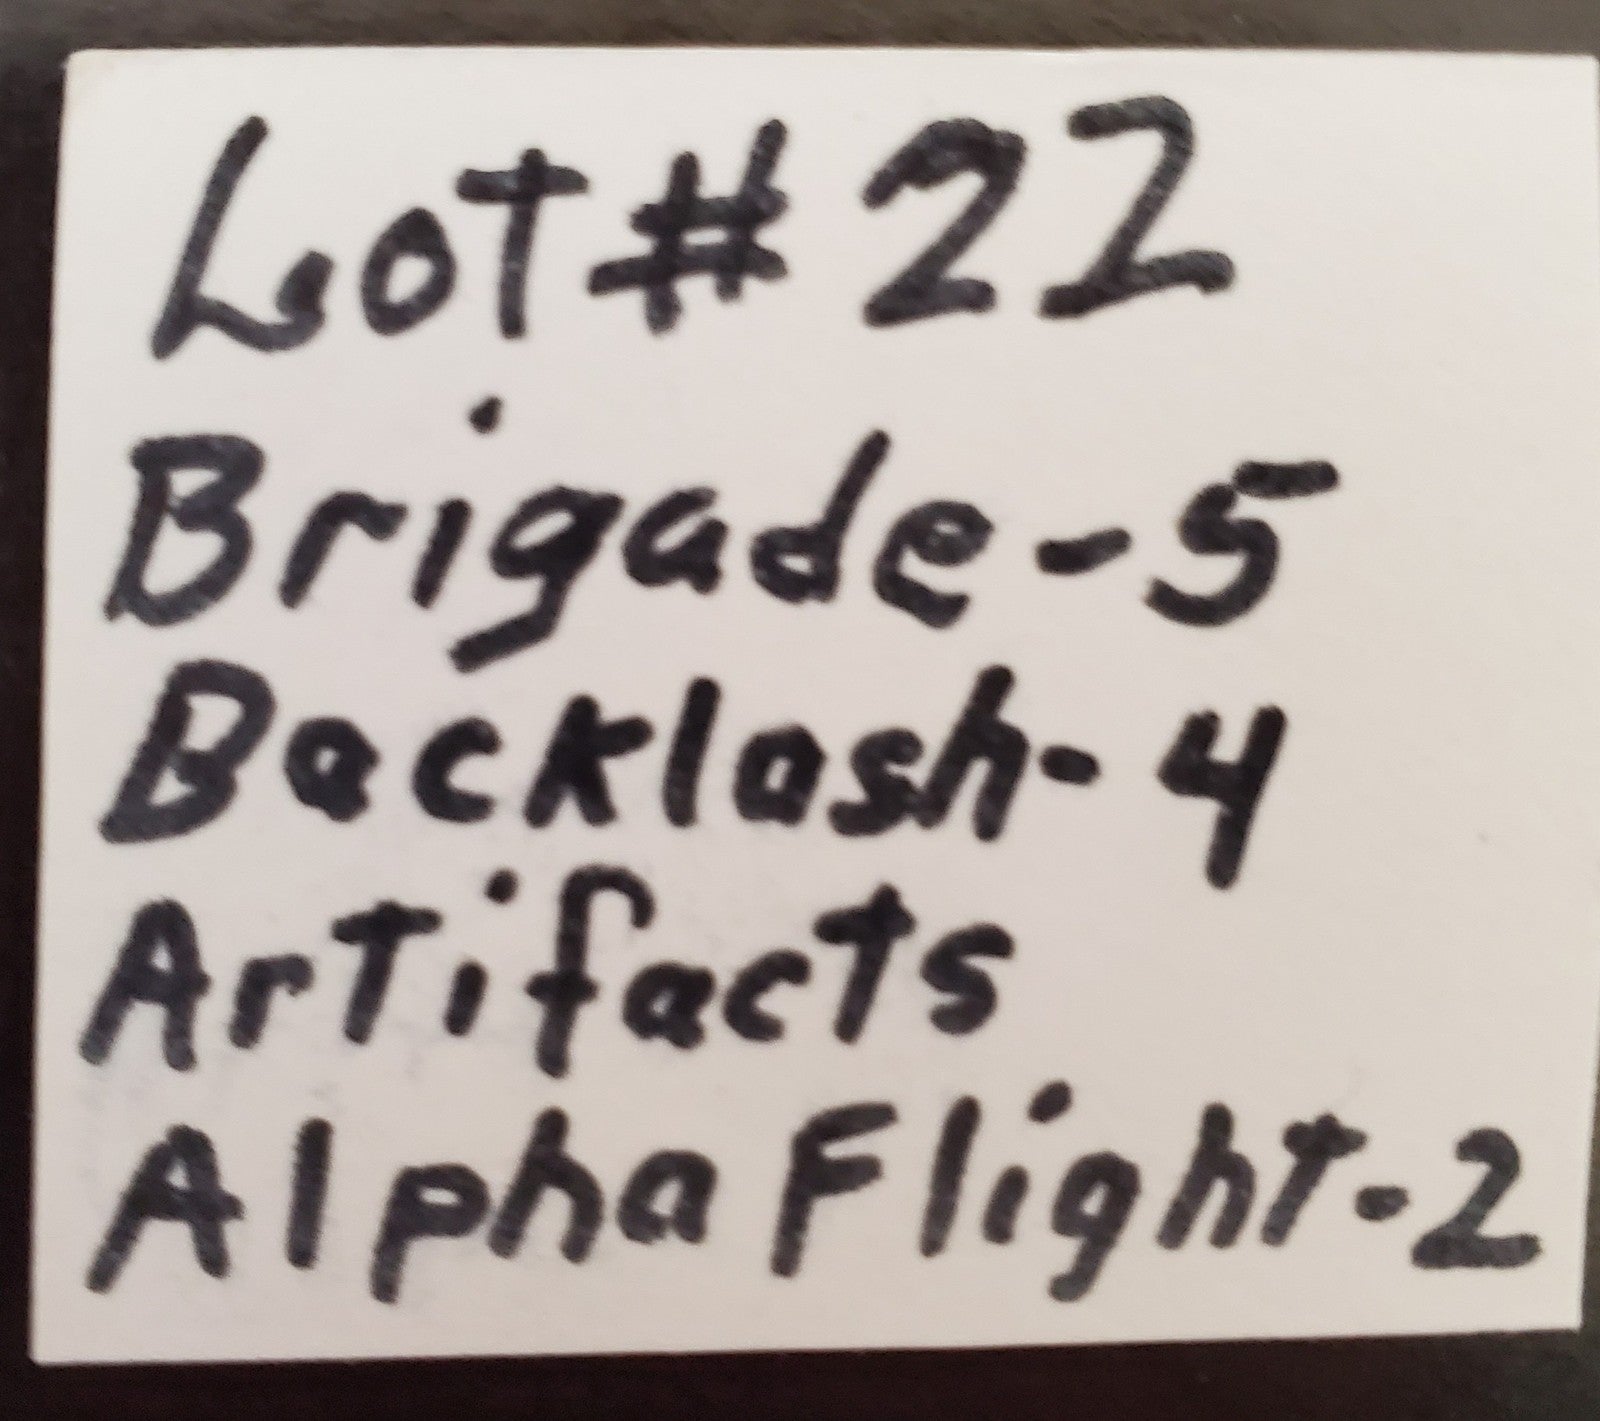 Lot # 22
Brigade - 5
Backlash - 4
Artifacts
Alpha Flight - 2